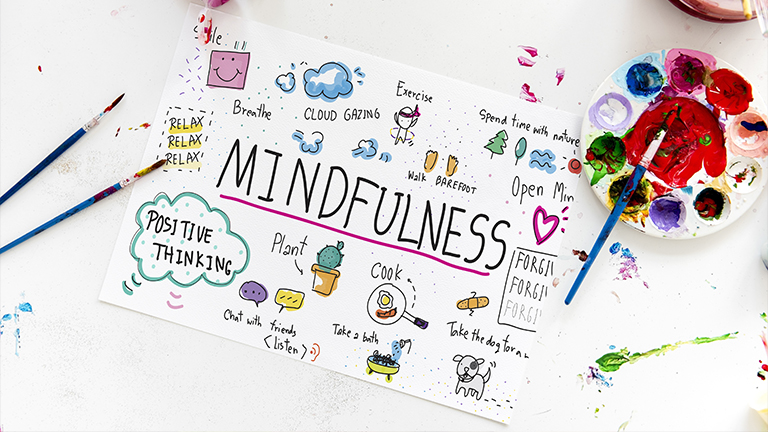 Breathe
CLOUD GAZING
Exercise
Spend time with nature
RELAX
RELAX
RELAX
Walk BAREFOOT
Open Min
MINDFULNESS
POSITIVE
THINKING
Plant
Cook
FORGI
FORGI
FORGI
Chat with friends
<Listen>
Take a bath
Take the dog for a